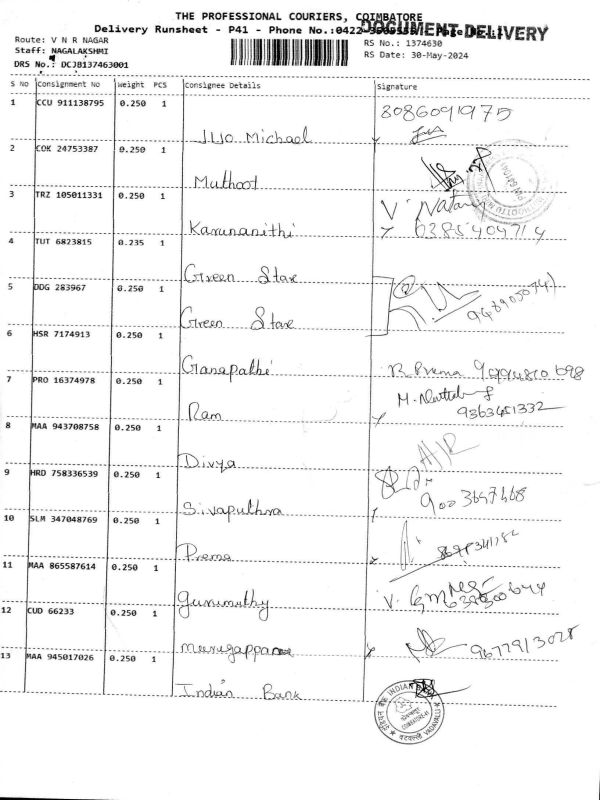 THE PROFESSIONAL COURIERS, COIMBATORE
DOCUMENT DELIVERY
Delivery Runsheet - P41 - Phone No.:0422
Route: V N R NAGAR
RS No.: 1374630
Staff: NAGALAKSHMI
RS Date: 30-May-2024
DRS No.: DCJB137463001
S No Consignment No Weight PCS Consignee Details Signature
1 CCU 911138795 0.250 1 8086091975
Jijo Michael
2 COK 24753387 0.250 1
Muthoot
3 TRZ 105011331 0.250 1 V.
Karunanithi
4 TUT 6823815 0.235 1
Green Stare
5 DDG 283967 0.250 1
Green Stare
6 HSR 7174913 0.250 1
Ganapathi R. Prema
7 PRO 16374978 0.250 1 M.
Ram 9363451332
8 MAA 943708758 0.250 1
Divya
9 HRD 758336539 0.250 1
Sivaputhra
10 SLM 347048769 0.250 1
Prema
11 MAA 865587614 0.250 1
gunumuthy V.
12 CUD 66233 0.250 1
murugappa 9677913028
13 MAA 945017026 0.250 1
Indian Bank
INDIAN BANK
VADAVALLI